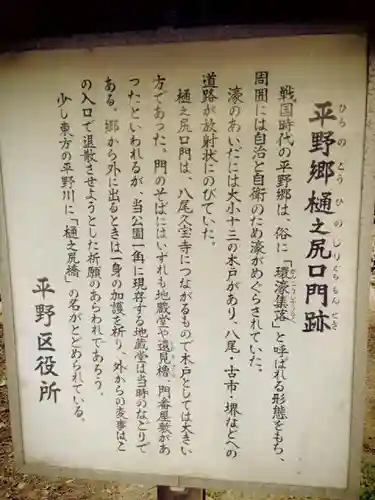 平野郷樋之尻口門跡
ひらの どう ひの しりぐちもん あと
戦国時代の平野郷は、俗に「環濠集落」と呼ばれる形態をもち、
周囲には自治と自衛のため濠がめぐらされていた。
濠のあいだには大小十三の木戸があり、八尾・古市・堺などへの
道路が放射状にのびていた。
樋之尻口門は、八尾久宝寺につながるもので木戸としては大きい
方であった。門のそばにはいずれも地蔵堂や遠見櫓、門番屋敷があ
ったといわれるが、当公園一角に現存する地蔵堂は当時のなごりで
ある。郷から外に出るときは一身の加護を祈り、外からの変事はこ
の入口で退散させようとした祈願のあらわれであろう。
少し東方の平野川に「樋之尻橋」の名がとどめられている。
平野区役所